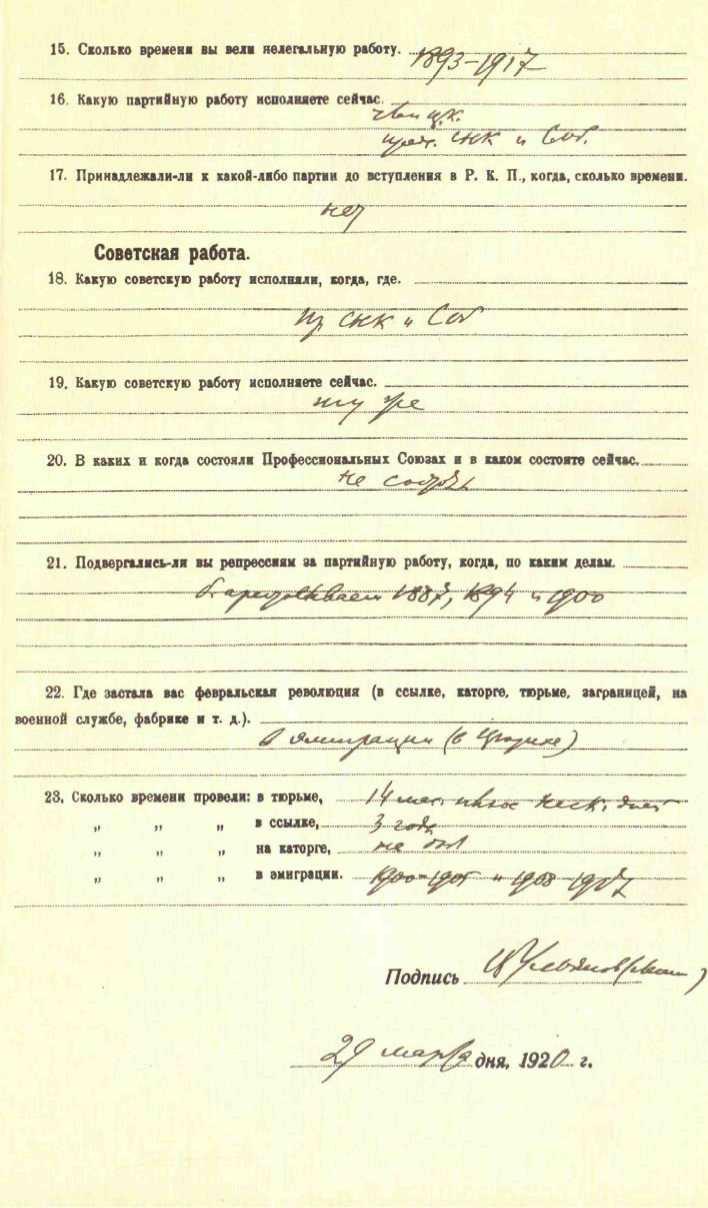 15. Сколько времени вы вели нелегальную работу. 1893–1917
16. Какую партийную работу исполняете сейчас.
член Ц.К.
пред. СНК и СОб.
17. Принадлежали-ли к какой-либо партии до вступления в Р. К. П., когда, сколько времени.
нет
Советская работа.
18. Какую советскую работу исполняли, когда, где.
СНК и СОб
19. Какую советскую работу исполняете сейчас.
ту же
20. В каких и когда состояли Профессиональных Союзах и в каком состоите сейчас.
не состоял
21. Подвергались-ли вы репрессиям за партийную работу, когда, по каким делам.
1887, 1894 и 1900
22. Где застала вас февральская революция (в ссылке, каторге, тюрьме, заграницей, на
военной службе, фабрике и т. д.).
в эмиграции (в Цюрихе)
23. Сколько времени провели: в тюрьме, 14 мес. плюс неск. дней
„ „ „ в ссылке, 3 года
„ „ „ на каторге, не был
„ „ „ в эмиграции. 1900–1905 и 1908–1917
Подпись В Ульянов (Ленин)
29 марта дня, 1920 г.